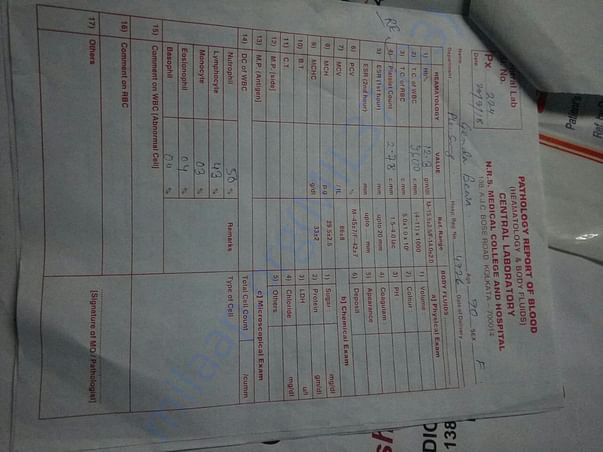 PATHOLOGY REPORT OF BLOOD
(HEAMATOLOGY & BODY FLUIDS)
CENTRAL LABORATORY
N.R.S. MEDICAL COLLEGE AND HOSPITAL
138, A.J.C BOSE ROAD, KOLKATA - 700014
Lab
Px 224
Date
Name Bewa Age 70 SEX F
Department Hosp. Reg. No. Date of Delivery
HEAMATOLOGY VALUE Ref. Range BODY FLUIDS
1) Hb% 12.3 gm/dl a) Physical Exam
2) T.C. of WBC 9,600 c.mm (4-11) x 1000 1) Volume
3) T.C. of RBC c.mm 2) Colour
4) Platelet Count 2.78 c.mm 1.5-4.0 lac 3) PH
5) ESR (1st hour) mm upto 20 mm 4) Coagulam
ESR (2nd hour) mm upto mm 5) Apearance
6) PCV % 6) Deposit
7) MCV / fL 86±8 b) Chemical Exam
8) MCH p.g 29.5±2.5 1) Sugar mg/dl
9) MCHC g/dl 33±2 2) Protein gm/dl
10) B.T 3) LDH u/l
11) C.T. 4) Chloride mg/dl
12) M.P. [side] 5) Others
13) M.P. (Antigen) c) Microscopical Exam
14) DC of WBC Remarks Total Cell Count /cumm
Nutrophil 50 % Type of Cell
Lymphocyte 43 %
Monocyte 03 %
Eosionophil 04 %
Basophil 00 %
15) Comment on WBC [Abnormal Cell]
16) Comment on RBC
17) Others
[Signature of MO / Pathologist]